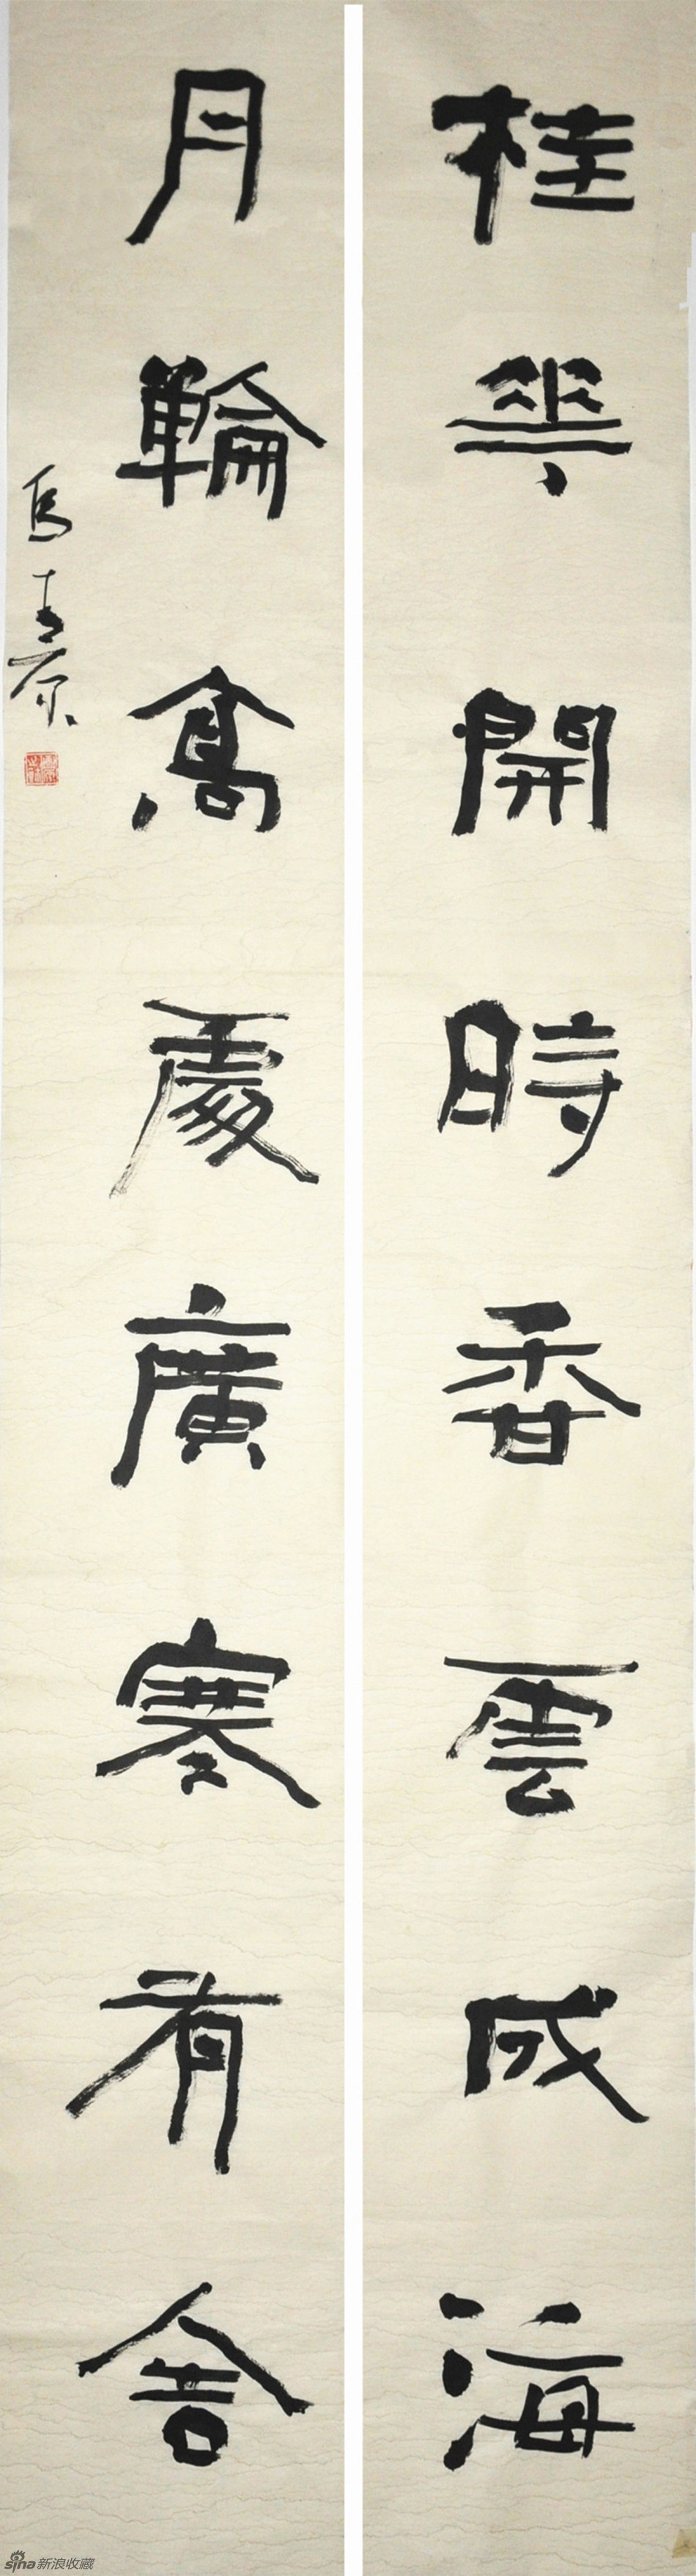 桂花開時香雲成海
月輪高處廣寒有舍
sina新浪收藏